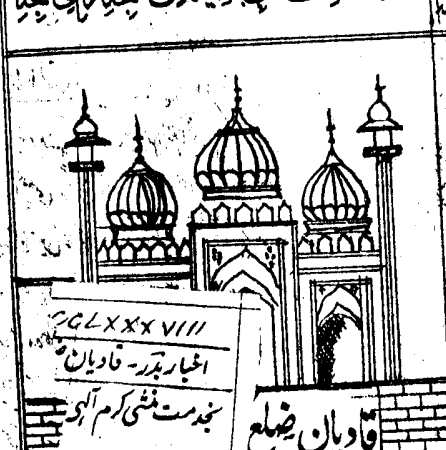 CLXXXVIII
اخبار بدر - قادیان
بخدمت منشی کرم آلہی
قادیان ضلع